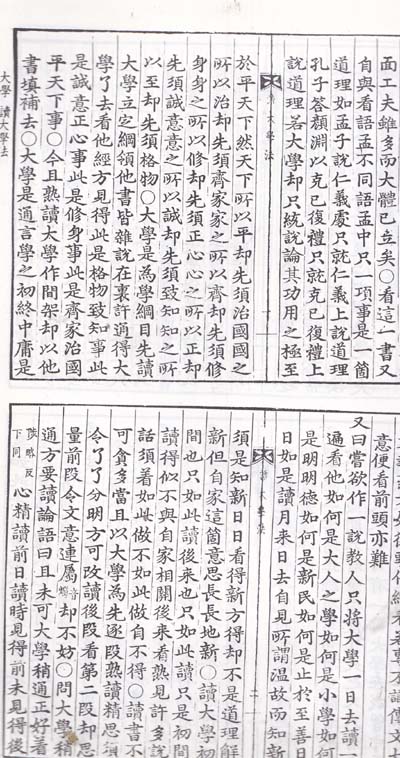 面工夫雖多而大體已立矣○看這一書又
自與看語孟不同語孟中只一項事是一箇
道理如孟子說仁義處只就仁義上說道理
孔子答顏淵以克己復禮只就克己復禮上
說道理若大學却只統說論其功用之極至
讀大學法
於平天下然天下所以平却先須治國國之
所以治却先須齊家家之所以齊却先須修
身身之所以修却先須正心心之所以正却
先須誠意意之所以誠却先須致知知之所
以至却先須格物○大學是為學綱目先讀
大學立定綱領他書皆雜說在裏許通得大
學了去看他經方見得此是格物致知事此
是誠意正心事此是修身事此是齊家治國
平天下事○今且熟讀大學作間架却以他
書填補去○大學是通言學之初終中庸是
大學 讀大學法
意便看前頭亦難
又曰嘗欲作一說教人只將大學一日去讀一
遍看他如何是大人之學如何是小學如何
是明明德如何是新民如何是止於至善日
日如是讀月來日去自見所謂溫故而知新
須是知新日日看得新方得却不是道理解
新但自家這箇意思長長地新○讀大學初
間也只如此讀後來也只如此讀只是初間
讀得似不與自家相關後來看熟見許多說
話須着如此做不如此做自不得○讀書不
可貪多當且以大學為先逐段熟讀精思須
令了了分明方可改讀後段看第二段却思
量前段令文意連屬音燭却不妨○問大學稍
通方要讀論語曰且未可大學稍通正好着
下同心精讀前日讀時見得前未見得後